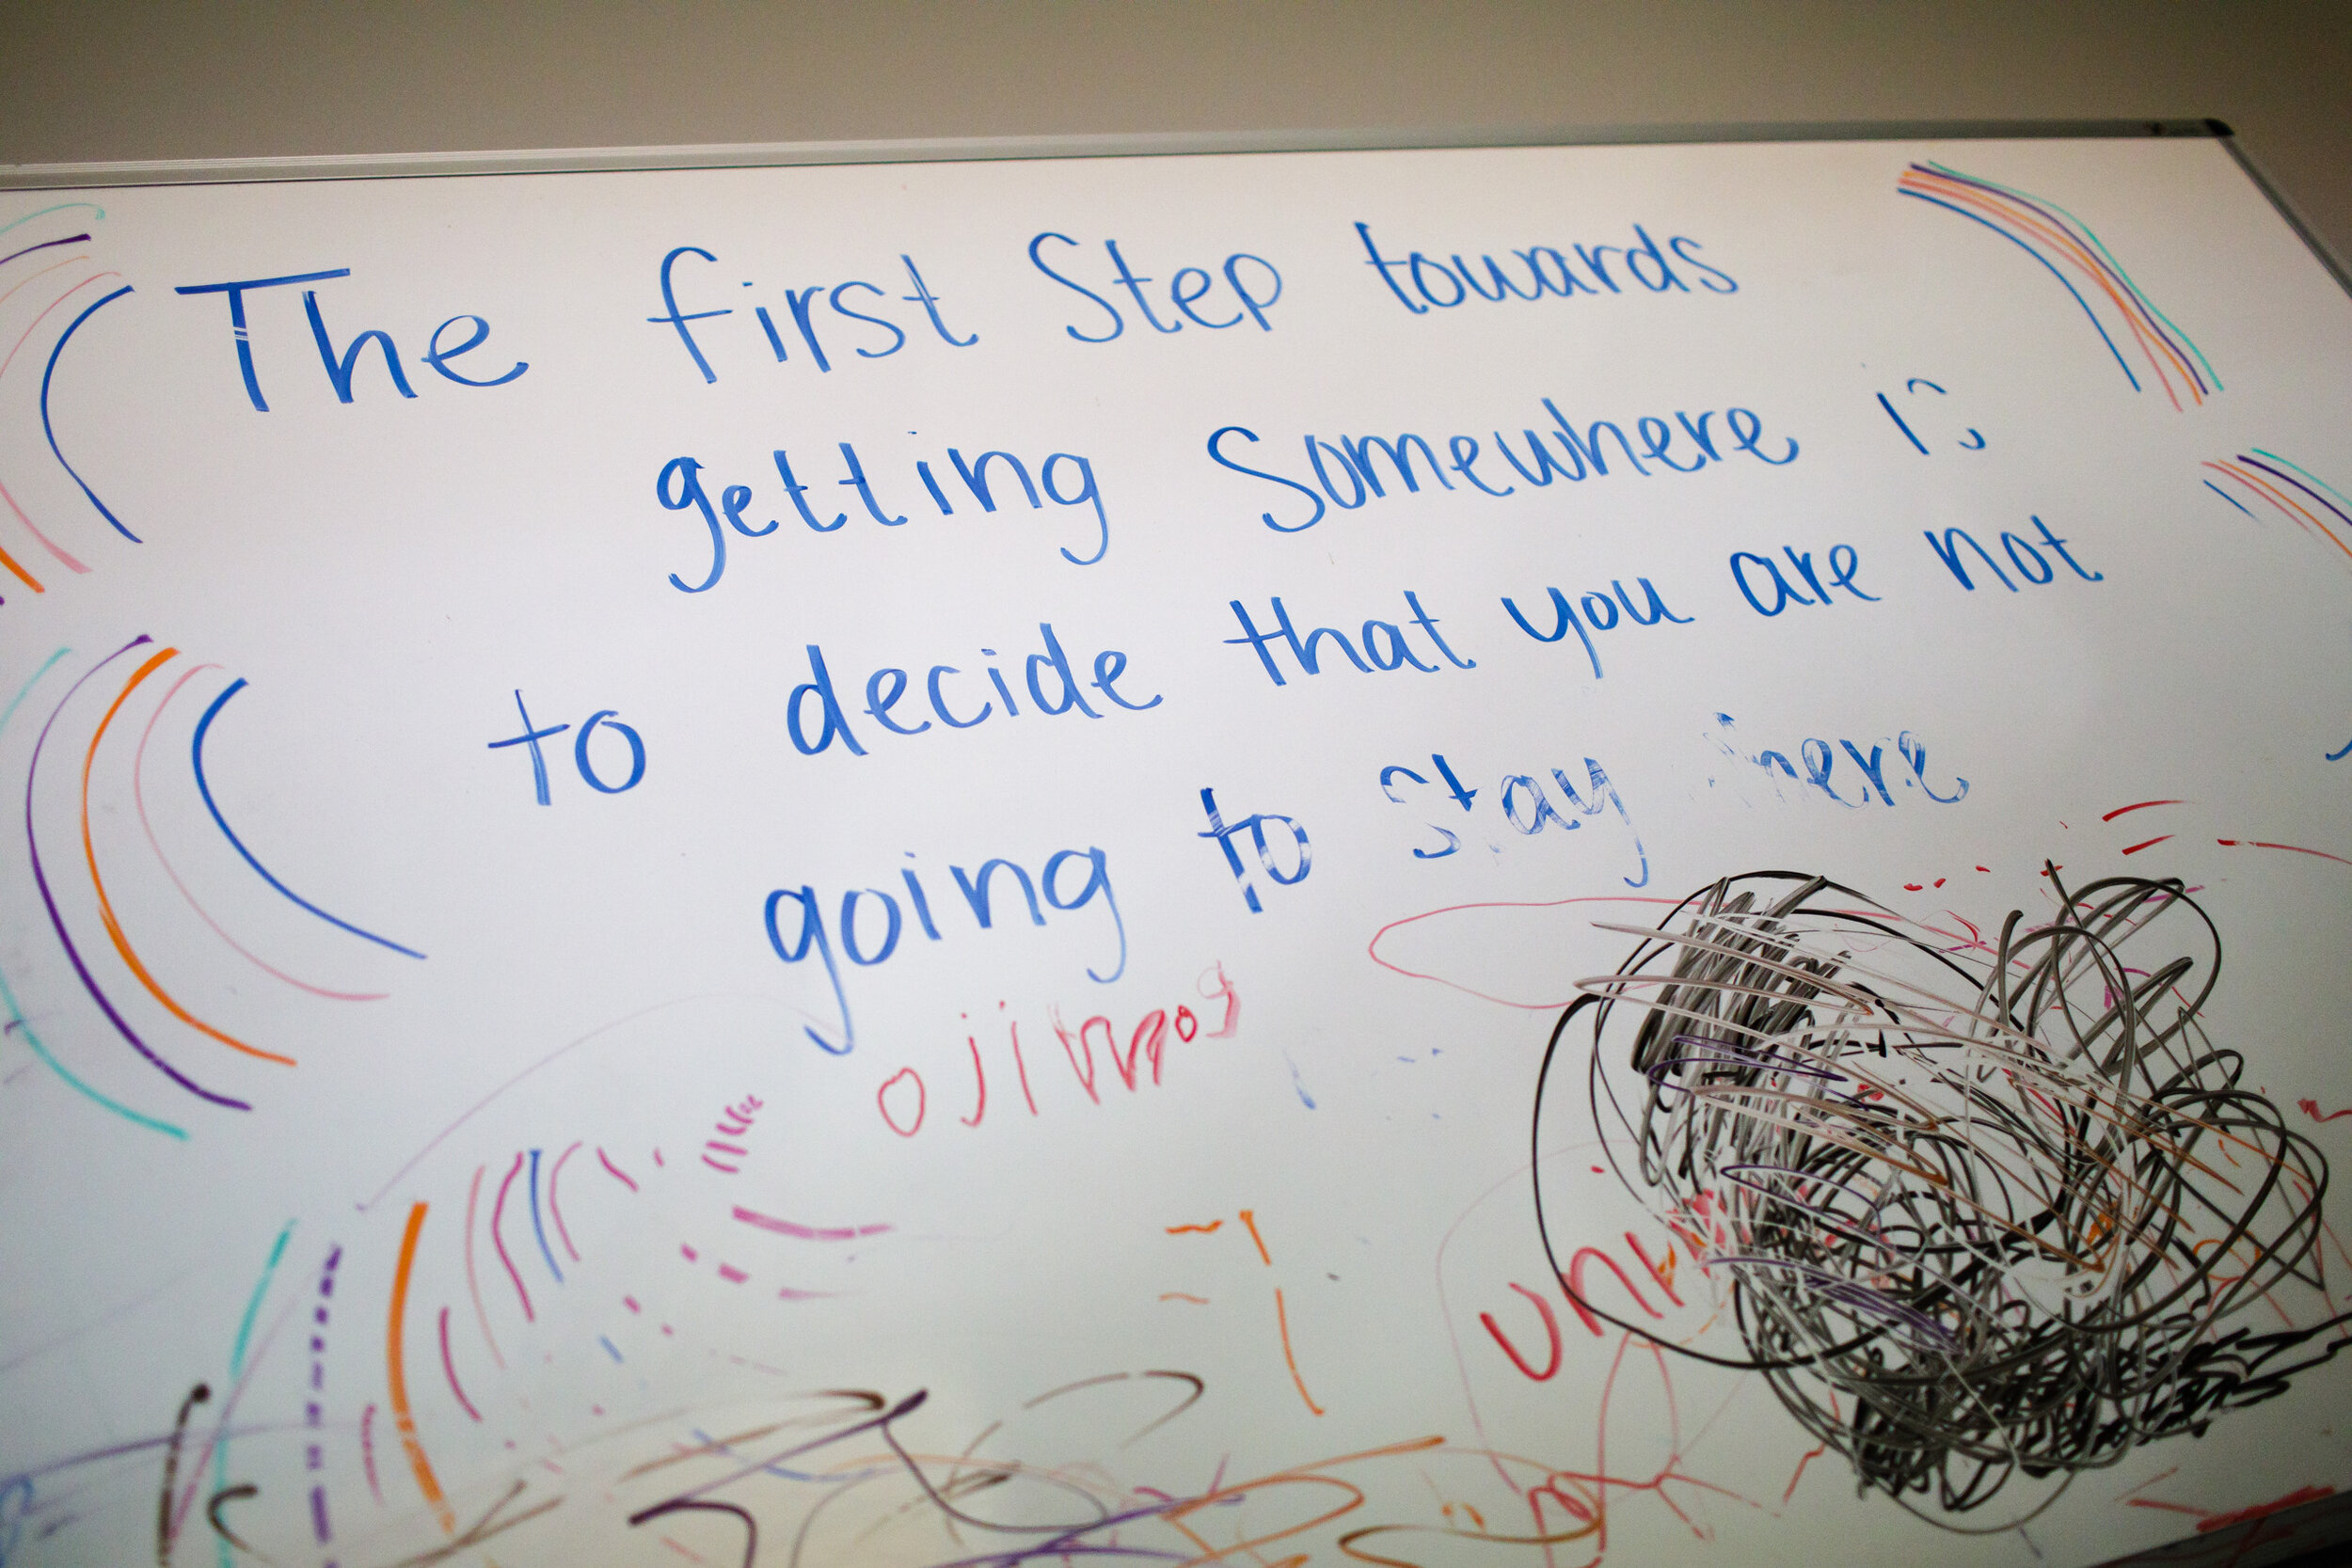 The first Step towards
getting Somewhere is
to decide that you are not
going to stay here